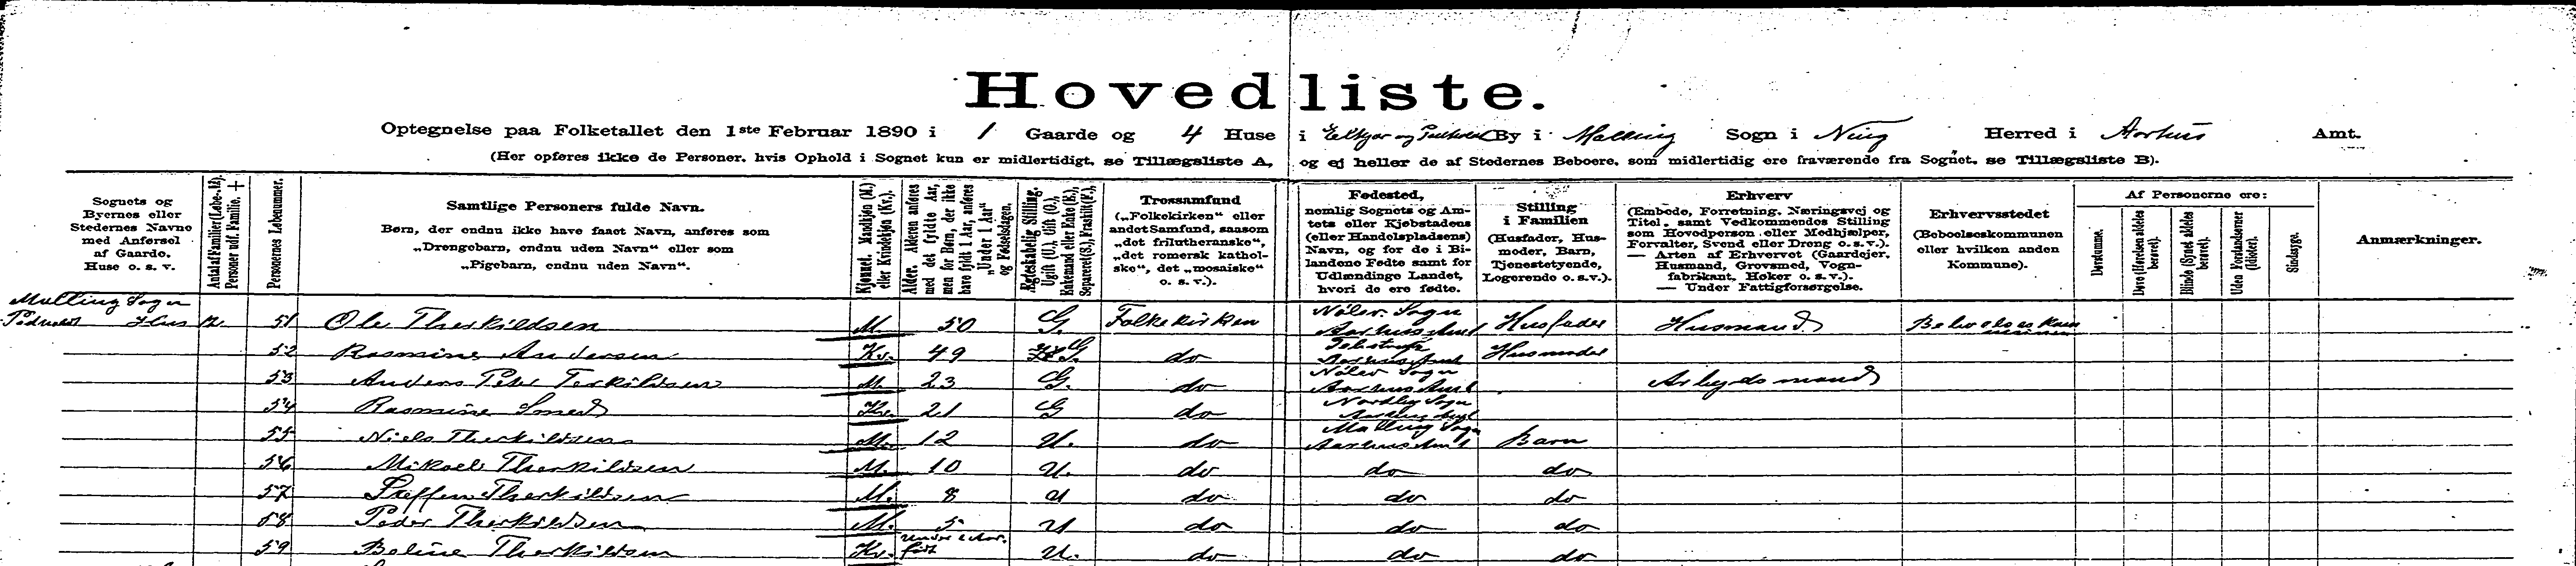 Hovedliste.
Optegnelse paa Folketallet den 1ste Februar 1890 i 1 Gaarde og 4 Huse i Elkjær og By i Malling Sogn i Ning Herred i Aarhus Amt.
(Her opføres ikke de Personer, hvis Ophold i Sognet kun er midlertidigt, se Tillægsliste A, og ej heller de af Stedernes Beboere, som midlertidig ere fraværende fra Sognet, se Tillægsliste B).
Sognets og Byernes eller Stedernes Navne med Anførsel af Gaarde, Huse o. s. v.
Antal af Familier (Løbe-№). Personer udf. Familie, +
Personernes Løbenummer.
Samtlige Personers fulde Navn.
Børn, der endnu ikke have faaet Navn, anføres som
„Drengebarn, endnu uden Navn“ eller som
„Pigebarn, endnu uden Navn“.
Kjønnet. Mandkjøn (M.) eller Kvindekjøn (Kv.).
Alder. Alderen anføres med det fyldte Aar, men for Børn, der ikke have fyldt 1 Aar, anføres „Under 1 Aar“ og Fødselsdagen.
Ægteskabelig Stilling. Ugift (U.), Gift (G.), Enkemand eller Enke (E.), Separeret (S.), Fraskilt (F.).
Trossamfund
(„Folkekirken“ eller andet Samfund, saasom „det frilutheranske“, „det romersk katholske“, det „mosaiske“ o. s. v.).
Fødested,
nemlig Sognets og Amtets eller Kjøbstadens (eller Handelspladsens) Navn, og for de i Bilandene Fødte samt for Udlændinge Landet, hvori de ere fødte.
Stilling i Familien
(Husfader, Husmoder, Barn, Tjenestetyende, Logerende o. s. v.).
Erhverv
(Embede, Forretning, Næringsvej og Titel, samt Vedkommendes Stilling som Hovedperson eller Medhjælper, Forvalter, Svend eller Dreng o. s. v.). — Arten af Erhvervet (Gaardejer, Husmand, Grovsmed, Vognfabrikant, Høker o. s. v.). — Under Fattigforsørgelse.
Erhvervsstedet
(Beboelseskommunen eller hvilken anden Kommune).
Af Personerne ere:
Døvstumme.
Døve (Hørelsen aldeles berøvet).
Blinde (Synet aldeles berøvet).
Uden Forstandsevner (Idioter).
Sindssyge.
Anmærkninger.
Malling Sogn
Hus 51 Ole Therkildsen M. 50 G. Folkekirken Nölev Sogn Aarhus Amt Husfader Husmand Beboelseskommunen
52 Rasmine Andersen Kv. 49 G. do Aarhus Amt Husmoder
53 Anders Peter Terkildsen M. 23 G. do Nölev Sogn Aarhus Amt Arbejdsmand
54 Rasmine Smed Kv. 21 G do Sogn Aarhus Amt
55 Niels Therkildsen M. 12 U. do Malling Sogn Aarhus Amt Barn
56 Mikael Therkildsen M. 10 U. do do do
57 Steffen Therkildsen M. 8 U do do do
58 Peder Therkildsen M. 5 U do do do
59 Boline Therkildsen Kv. Under 1 Aar. U. do do do